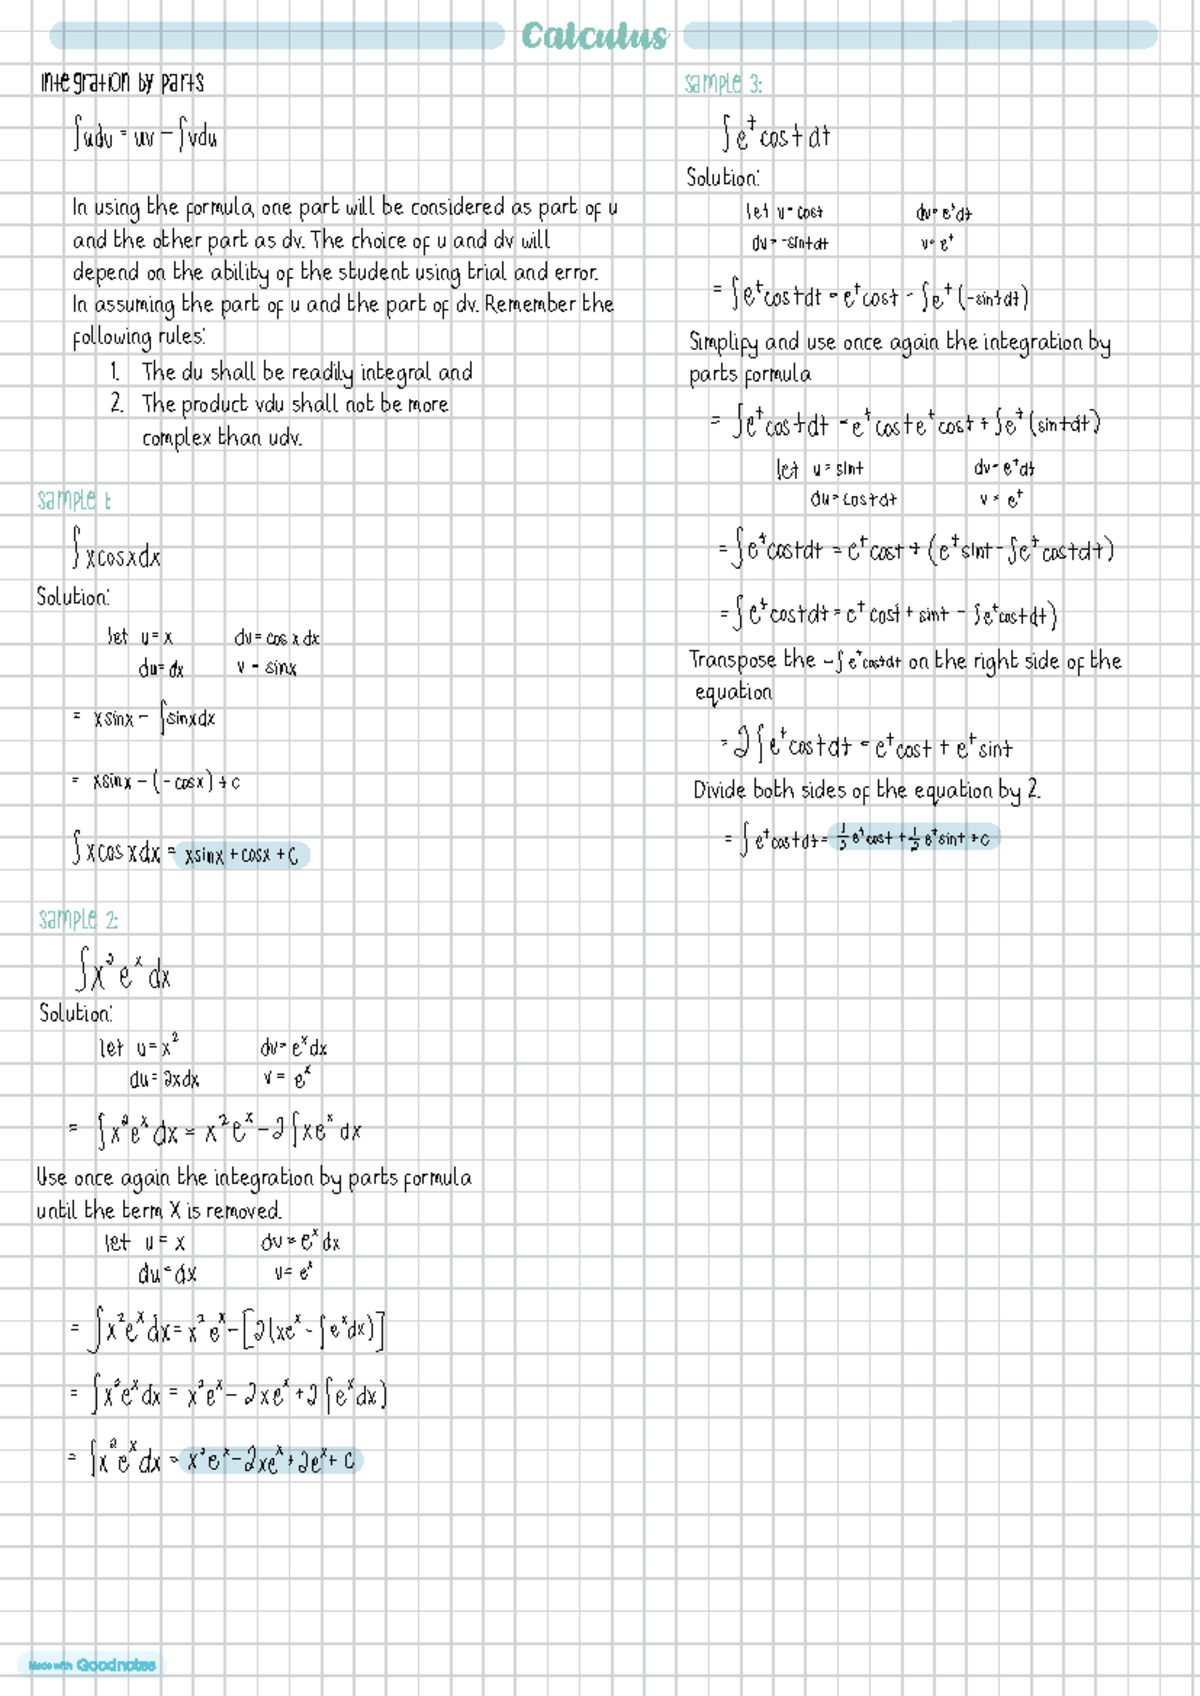 Calculus
Integration by parts
∫udv = uv - ∫vdu
In using the formula, one part will be considered as part of u
and the other part as dv. The choice of u and dv will
depend on the ability of the student using trial and error.
In assuming the part of u and the part of dv. Remember the
following rules:
1. The du shall be readily integral and
2. The product vdu shall not be more
complex than udv.
Sample 1:
∫xcosxdx
Solution:
let u = x dv = cos x dx
du = dx v = sinx
= xsinx - ∫sinxdx
= xsinx - (-cosx) + c
∫xcosxdx = xsinx + cosx + C
Sample 2:
∫x²eˣdx
Solution:
let u = x² dv = eˣdx
du = 2xdx v = eˣ
= ∫x²eˣdx = x²eˣ - 2∫xeˣdx
Use once again the integration by parts formula
until the term X is removed.
let u = x dv = eˣdx
du = dx v = eˣ
= ∫x²eˣdx = x²eˣ - [2(xeˣ - ∫eˣdx)]
= ∫x²eˣdx = x²eˣ - 2xeˣ + 2∫eˣdx)
= ∫x²eˣdx = x²eˣ - 2xeˣ + 2eˣ + C
Sample 3:
∫eᵗcostdt
Solution:
let u = cost dv = eᵗdt
du = -sintdt v = eᵗ
= ∫eᵗcostdt = eᵗcost - ∫eᵗ(-sintdt)
Simplify and use once again the integration by
parts formula
= ∫eᵗcostdt = eᵗcosteᵗcost + ∫eᵗ(sintdt)
let u = sint dv = eᵗdt
du = costdt v = eᵗ
= ∫eᵗcostdt = eᵗcost + (eᵗsint - ∫eᵗcostdt)
= ∫eᵗcostdt = eᵗcost + sint - ∫eᵗcostdt)
Transpose the -∫eᵗcostdt on the right side of the
equation
= 2∫eᵗcostdt = eᵗcost + eᵗsint
Divide both sides of the equation by 2.
= ∫eᵗcostdt = ½eᵗcost + ½eᵗsint + c
Made with Goodnotes